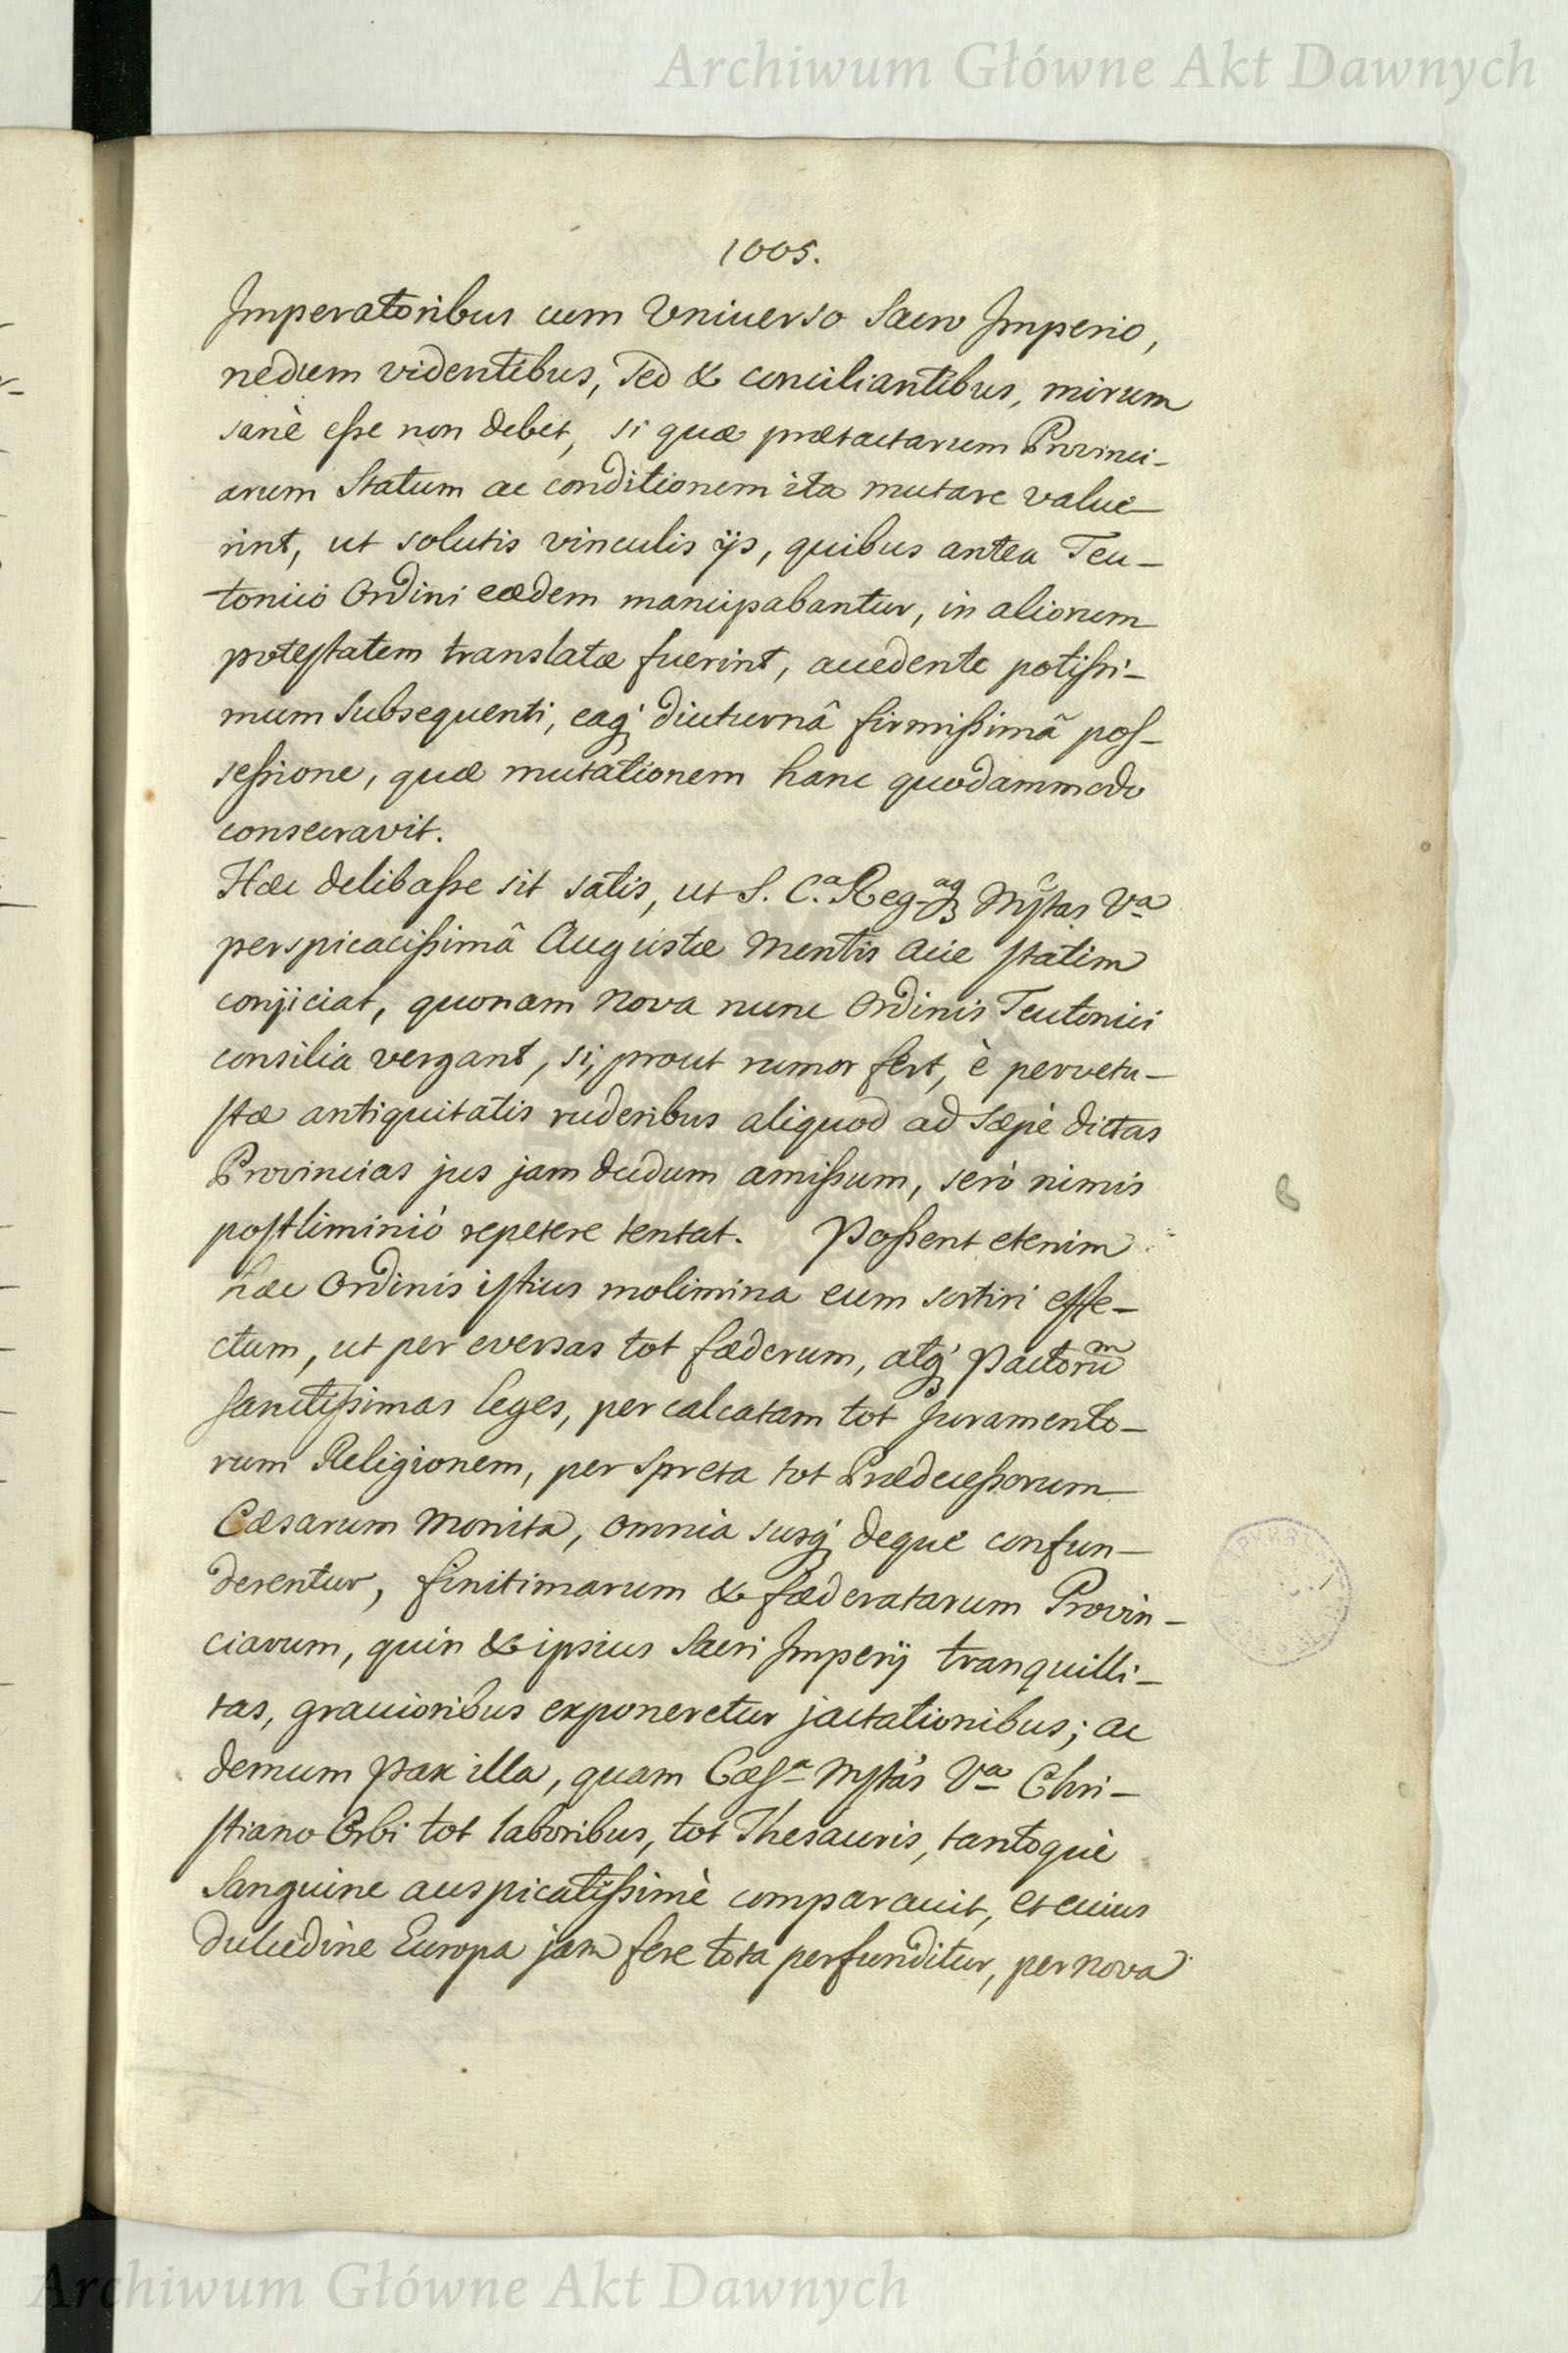 Archiwum Główne Akt Dawnych
1005.
Imperatoribus cum Vniuerso Sacro Imperio,
nedum videntibus, sed & conciliantibus, mirum
sanè esse non debet, si quæ prætactarum Provinci-
arum Statum ac conditionem ita mutare value-
rint, ut solutis vinculis ijs, quibus antea Teu-
tonico Ordini eædem mancipabantur, in aliorum
potestatem translatæ fuerint, accedente potissi-
mum subsequenti, eaq; diuturnâ firmissimâ pos-
sessione, quæ mutationem hanc quodammodo
consecravit.
Hæc delibasse sit satis, ut S. C.a Reg-aq; Mstas Va
perspicacissimâ Augustæ Mentis Acie statim
conjiciat, quonam Nova nunc Ordinis Teutonici
consilia vergant, si, prout rumor fert, è pervetu-
stæ antiquitatis ruderibus aliquod ad sæpè dictas
Provincias jus jam dudum amissum, serò nimis
postliminiò repetere tentat. Possent etenim
hæc Ordinis istius molimina eum sortiri effe-
ctum, ut per eversas tot fæderum, atq; Pactorum
sanctissimas leges, per calcatam tot Juramento-
rum Religionem, per spreta tot Prædecessorum
Cæsarum Monita, omnia susq; deque confun-
derentur, finitimarum & fæderatarum Provin-
ciarum, quin & ipsius Sacri Imperij tranquilli-
tas, grauioribus exponeretur jactationibus; ac
demum Pax illa, quam Cæsa Mstas Va Chri-
stiano Orbi tot laboribus, tot Thesauris, tantoquè
Sanguine auspicatissimè comparauit, et cuius
dulcedine Europa jam fere tota perfunditur, per nova
Archiwum Główne Akt Dawnych